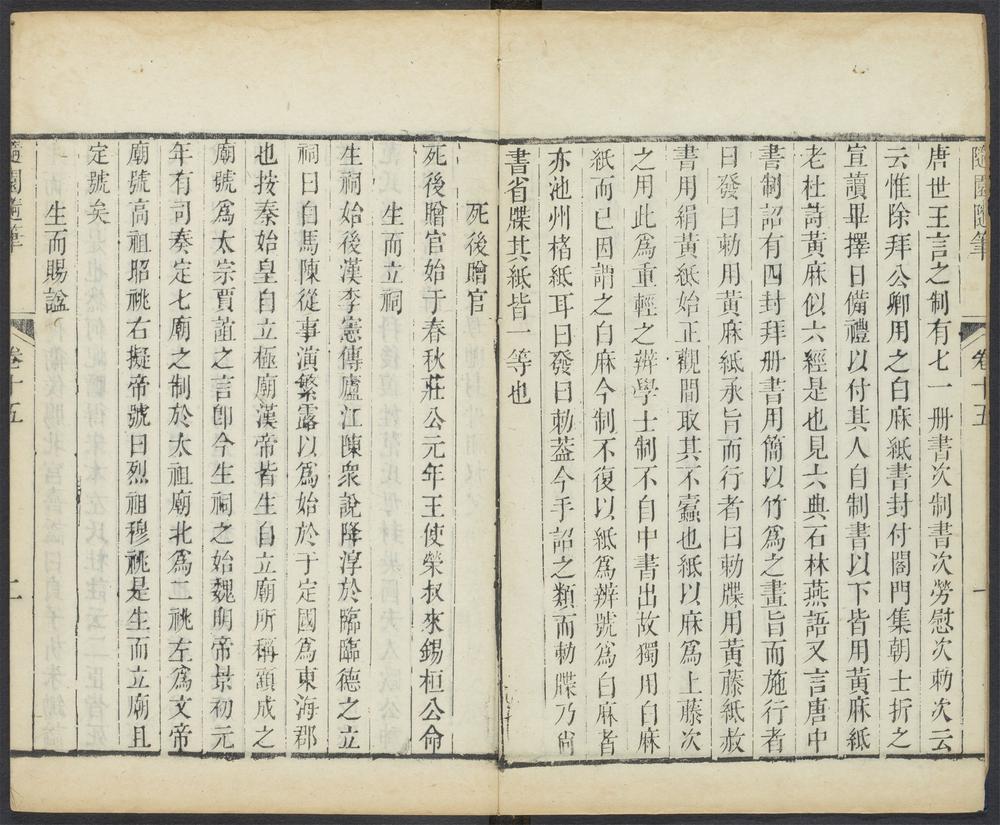 隨園隨筆 卷十五 一
唐世王言之制有七一册書次制書次勞慰次勅次云
云惟除拜公卿用之白麻紙書封付閤門集朝士折之
宣讀畢擇日備禮以付其人自制書以下皆用黃麻紙
老杜詩黃麻似六經是也見六典石林燕語又言唐中
書制詔有四封拜册書用簡以竹爲之畫旨而施行者
曰發曰勅用黃麻紙承旨而行者曰勅牒用黃藤紙赦
書用絹黃紙始正觀間取其不蠹也紙以麻爲上藤次
之用此爲重輕之辨學士制不自中書出故獨用白麻
紙而已因謂之白麻今制不復以紙爲辨號爲白麻者
亦池州楮紙耳曰發曰勅葢今手詔之類而勅牒乃尙
書省牒其紙皆一等也
死後贈官
死後贈官始于春秋莊公元年王使榮叔來錫桓公命
生而立祠
生祠始後漢李憲傳廬江陳衆說降淳於臨臨德之立
祠曰白馬陳從事演繁露以爲始於于定國爲東海郡
也按秦始皇自立極廟漢帝皆生自立廟所稱顧成之
廟號爲太宗賈誼之言卽今生祠之始魏明帝景初元
年有司奏定七廟之制於太祖廟北爲二祧左爲文帝
廟號高祖昭祧右擬帝號曰烈祖穆祧是生而立廟且
定號矣
生而賜諡
隨園隨筆 卷十五 二